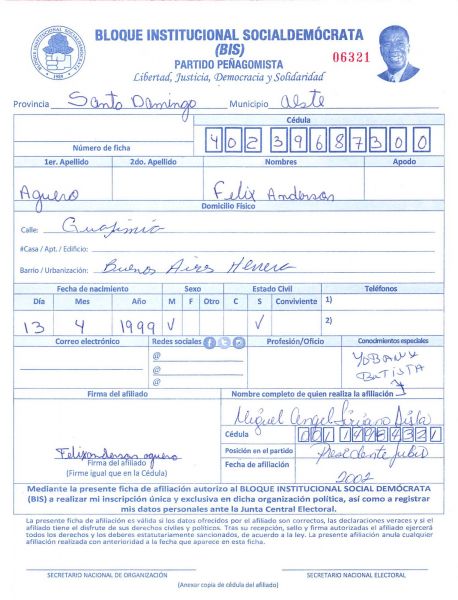 BLOQUE INSTITUCIONAL SOCIALDEMÓCRATA
(BIS)
06321
PARTIDO PEÑAGOMISTA
Libertad, Justicia, Democracia y Solidaridad
Provincia Santo Domingo Municipio oeste
Cédula
Número de ficha 40239687300
1er. Apellido 2do. Apellido Nombres Apodo
Aguero Felix Anderson
Domicilio Físico
Calle: Guajimia
#Casa / Apt. / Edificio:
Barrio / Urbanización: Buenos Aires Herrera
Fecha de nacimiento Sexo Estado Civil Teléfonos
Día Mes Año M F Otro C S Conviviente 1)
13 4 1999 V V 2)
Correo electrónico Redes sociales Profesión/Oficio Conocimientos especiales
@
@
@
BATISTA
Firma del afiliado Nombre completo de quien realiza la afiliación
Miguel Angel
Cédula
Felixanderson aguero
Firma del afiliado
(Firme igual que en la Cédula)
Posición en el partido Presidente
Fecha de afiliación
2002
Mediante la presente ficha de afiliación autorizo al BLOQUE INSTITUCIONAL SOCIAL DEMÓCRATA
(BIS) a realizar mi inscripción única y exclusiva en dicha organización política, así como a registrar
mis datos personales ante la Junta Central Electoral.
La presente ficha de afiliación es válida si los datos ofrecidos por el afiliado son correctos, las declaraciones veraces y si el
afiliado tiene el disfrute de sus derechos civiles y políticos. Tras su recepción, sello y firma autorizadas el afiliado ejercerá
todos los derechos y los deberes estatutariamente sancionados, de acuerdo a la ley. La presente afiliación anula cualquier
afiliación realizada con anterioridad a la fecha que aparece en esta ficha.
SECRETARIO NACIONAL DE ORGANIZACIÓN SECRETARIO NACIONAL ELECTORAL
(Anexar copia de cédula del afiliado)